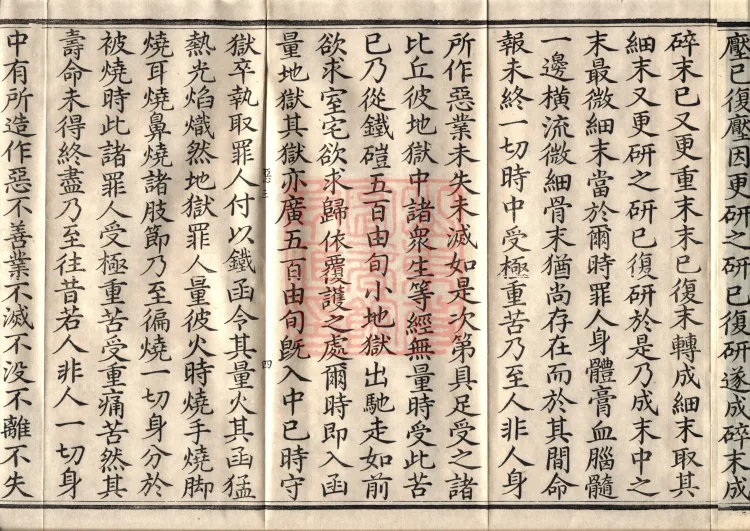 壓已復壓因更研之研已復研遂成碎末成
碎末已又更重末末已復末轉成細末取其
細末又更研之研已復研於是乃成末中之
末最微細末當於爾時罪人身體膏血腦髓
一邊橫流微細骨末猶尚存在而於其間命
報未終一切時中受極重苦乃至人非人身
所作惡業未失未滅如是次第具足受之諸
比丘彼地獄中諸衆生等經無量時受此苦
已乃從鐵磑五百由旬小地獄出馳走如前
欲求室宅欲求歸依覆護之處爾時即入函
量地獄其獄亦廣五百由旬旣入中已時守
四
獄卒執取罪人付以鐵函令其量火其函猛
熱光焰熾然地獄罪人量彼火時燒手燒脚
燒耳燒鼻燒諸肢節乃至徧燒一切身分於
被燒時此諸罪人受極重苦受重痛苦然其
壽命未得終盡乃至往昔若人非人一切身
中有所造作惡不善業不滅不没不離不失